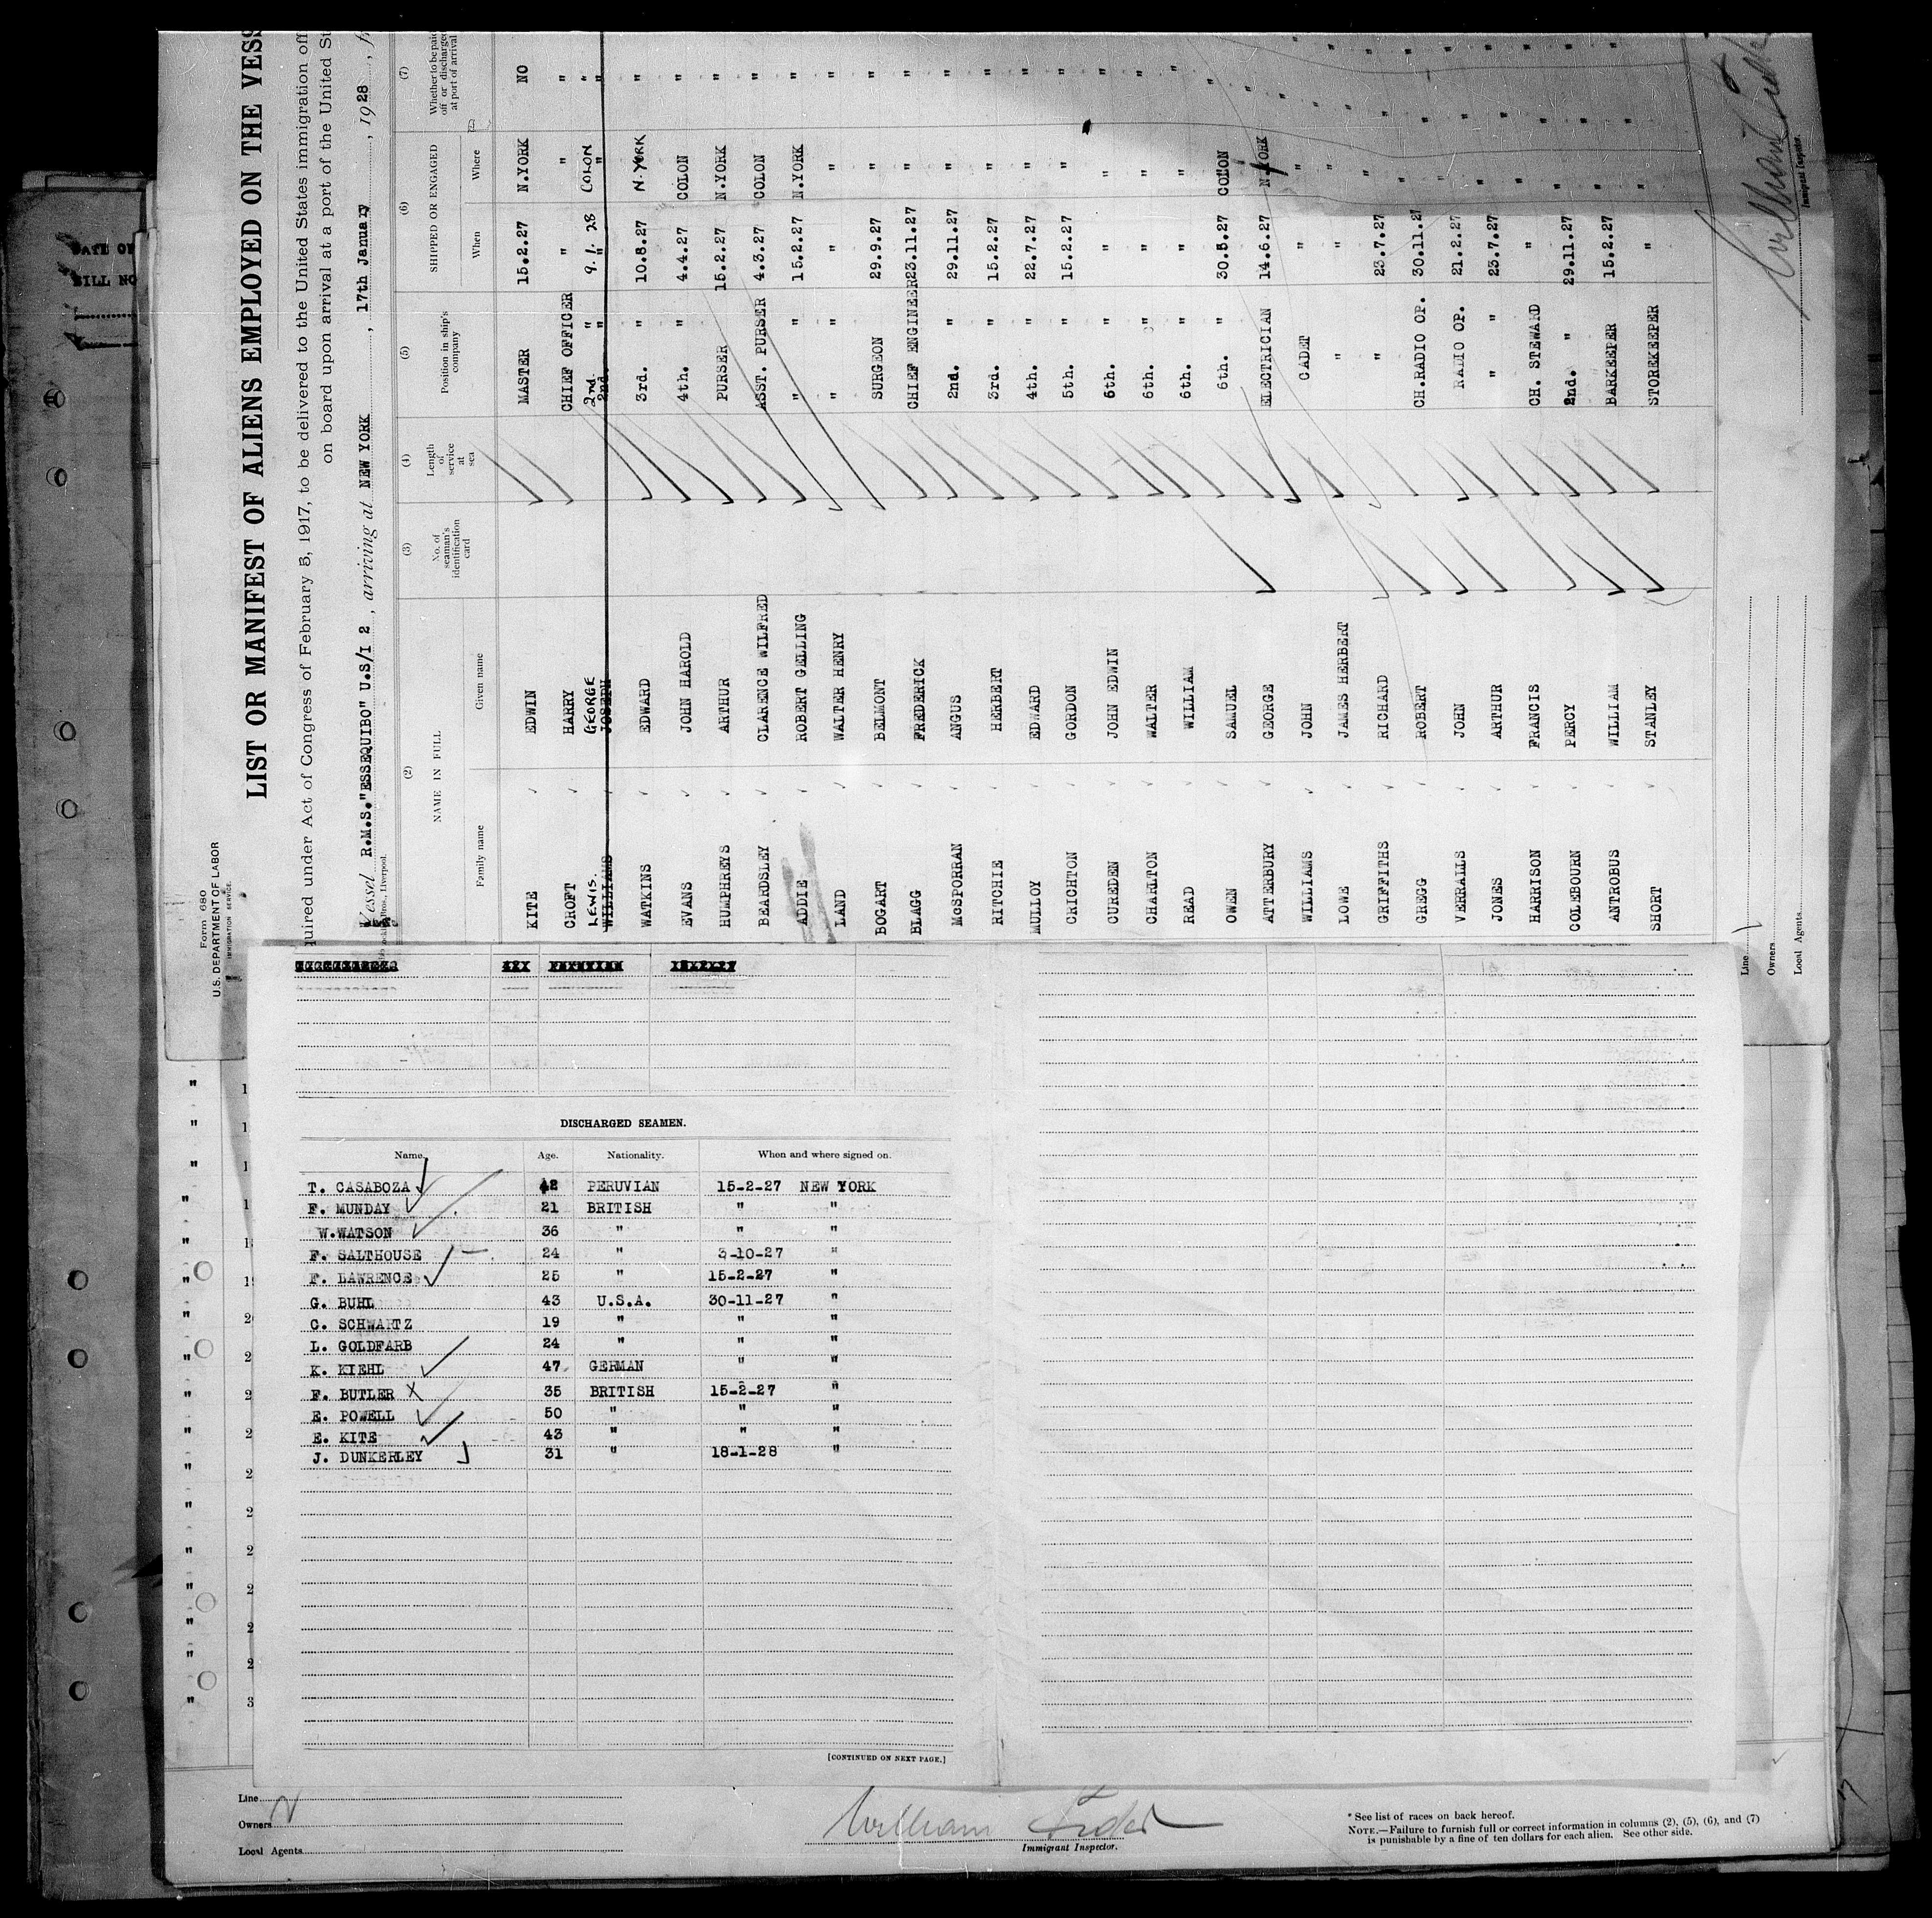 DATE OF
BILL NO
Form 680
U.S. DEPARTMENT OF LABOR
IMMIGRATION SERVICE.
LIST OR MANIFEST OF ALIENS EMPLOYED ON THE VESS
quired under Act of Congress of February 5, 1917, to be delivered to the United States immigration off
on board upon arrival at a port of the United St
Vessel R.M.S. "ESSEQUIBO" U.S/I 2, arriving at NEW YORK, 17th January, 1928, fr
Bros., Liverpool.
(2) (3) (4) (5) (6) (7)
NAME IN FULL No. of seaman's identification card Length of service at sea Position in ship's company SHIPPED OR ENGAGED Whether to be paid off or discharged at port of arrival
Family name Given name When Where
KITE EDWIN MASTER 15.2.27 N.YORK NO
CROFT HARRY CHIEF OFFICER " " "
LEWIS. GEORGE 2nd. " 9.1.28 COLON "
WILLIAMS JOSEPH 2nd. " " " "
WATKINS EDWARD 3rd. " 10.8.27 N.YORK "
EVANS JOHN HAROLD 4th. " 4.4.27 COLON "
HUMPHREYS ARTHUR PURSER 15.2.27 N.YORK "
BEARDSLEY CLARENCE WILFRED ASST. PURSER 4.3.27 COLON "
ADDIE ROBERT GELLING " " 15.2.27 N.YORK "
LAND WALTER HENRY " " " " "
BOGART BELMONT SURGEON 29.9.27 " "
BLAGG FREDERICK CHIEF ENGINEER 23.11.27 " "
McSPORRAN ANGUS 2nd. " 29.11.27 " "
RITCHIE HERBERT 3rd. " 15.2.27 " "
MULLOY EDWARD 4th. " 22.7.27 " "
CRICHTON GORDON 5th. " 15.2.27 " "
CUREDEN JOHN EDWIN 6th. " " " "
CHARLTON WALTER 6th. " " " "
READ WILLIAM 6th. " " " "
OWEN SAMUEL 6th. " 30.5.27 COLON "
ATTERBURY GEORGE ELECTRICIAN 14.6.27 N.YORK "
WILLIAMS JOHN CADET " " "
LOWE JAMES HERBERT " " " "
GRIFFITHS RICHARD " 23.7.27 " "
GREGG ROBERT CH.RADIO OP. 30.11.27 " "
VERRALLS JOHN RADIO OP. 21.2.27 " "
JONES ARTHUR " " 23.7.27 " "
HARRISON FRANCIS CH. STEWARD " " "
COLEBOURN PERCY 2nd. " 29.11.27 " "
ANTROBUS WILLIAM BARKEEPER 15.2.27 " "
SHORT STANLEY STOREKEEPER " " "
Line
Owners
Local Agents
Immigrant Inspector.
DISCHARGED SEAMEN.
Name. Age. Nationality. When and where signed on.
T. CASABOZA 42 PERUVIAN 15-2-27 NEW YORK
F. MUNDAY 21 BRITISH " "
W.WATSON 36 " " "
F. SALTHOUSE 24 " 3-10-27 "
F. LAWRENCE 25 " 15-2-27 "
G. BUHL 43 U.S.A. 30-11-27 "
C. SCHWARTZ 19 " " "
L. GOLDFARB 24 " " "
K. KIEHL 47 GERMAN " "
F. BUTLER X 35 BRITISH 15-2-27 "
E. POWELL 50 " " "
E. KITE 43 " " "
J. DUNKERLEY 31 " 18-1-28 "
[CONTINUED ON NEXT PAGE.]
Line
Owners
Local Agents
William
Immigrant Inspector.
* See list of races on back hereof.
NOTE.—Failure to furnish full or correct information in columns (2), (5), (6), and (7)
is punishable by a fine of ten dollars for each alien. See other side.